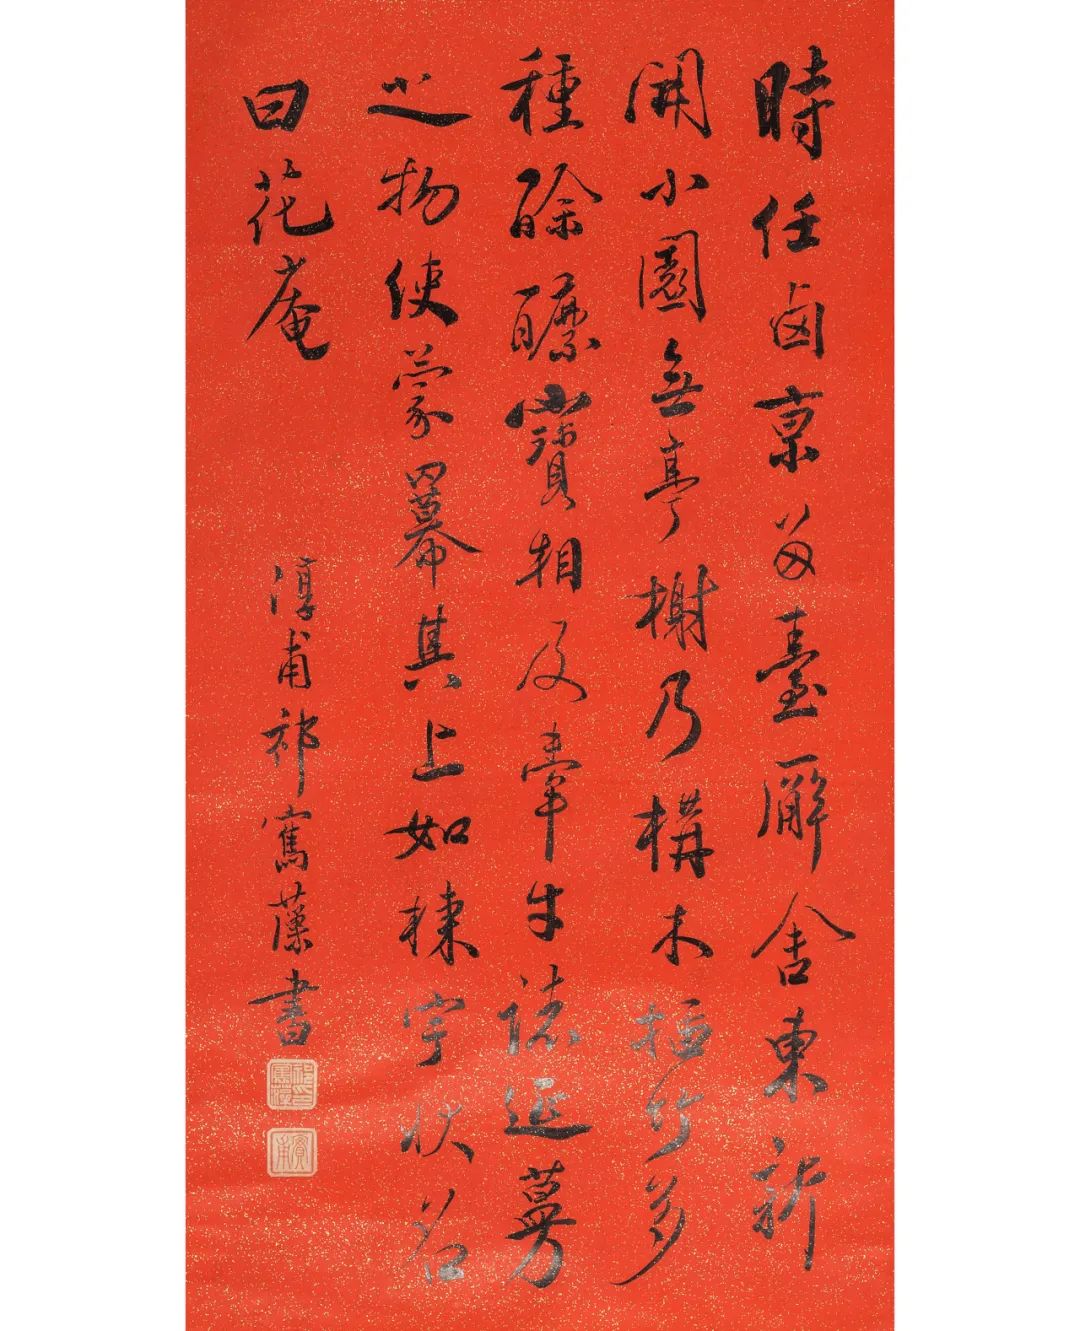 時任西京留臺廨舍東新
開小園無亭榭乃構木插竹多
種酴醾寶相及牽牛諸延蔓
之物使蒙羃其上如棟宇狀名
曰花庵
淳甫祁寯藻書
祁寯藻印
實甫